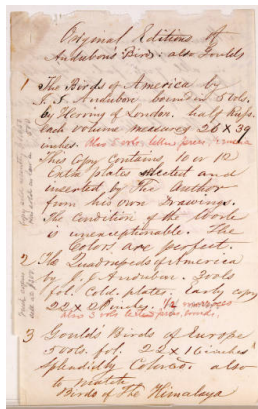 Original Editions of
Audubon's Birds also Goulds
1 The Birds of America by
J. J. Audubon bound in 5 vols.
by Herring of London. half
Each volume measures 26 X 39
inches. Also 5 vols letter press,
This Copy Contains 10 or 12
extra plates selected and
inserted, by the Author
from his own Drawings.
The Condition of the Work
is unexceptionable. The
Colors are perfect.
2 The Quadrupeds of America
by J. J. Audubon. 3 vols
fol. Cold. plates. Early copy
22 x 28 inches.
also 3 vols letter press,
3 Gould's Birds of Europe
5 vols. fol. 22 x 16 inches
Splendidly Colored. also
to match
Birds of The Himalaya